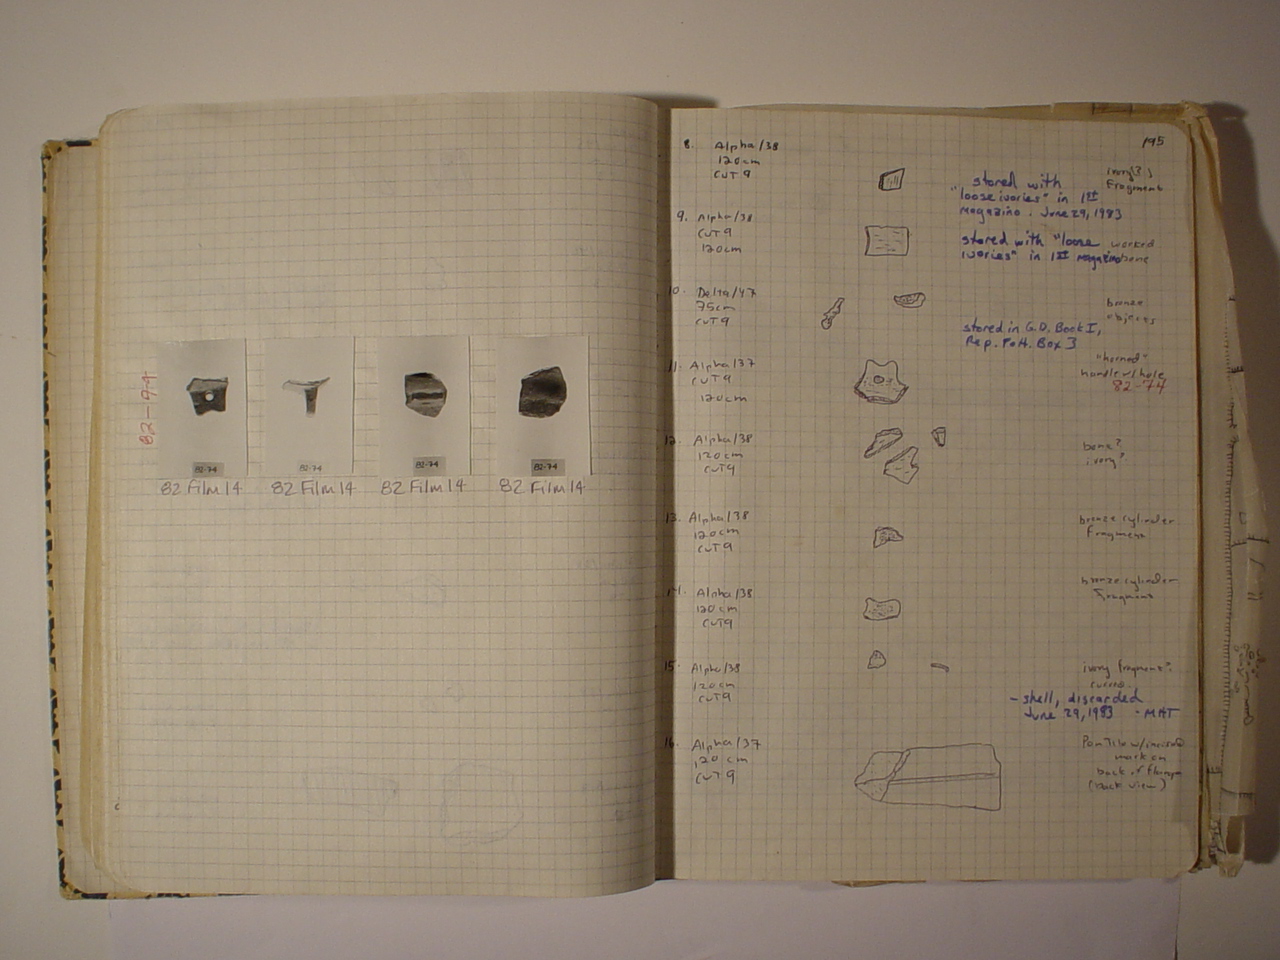 82-74
82-74
82-74
82-74
82-74
82 Film 14
82 Film 14
82 Film 14
82 Film 14
195
8. Alpha/38
120cm
CUT 9
ivory(?)
Fragment
stored with
"loose ivories" in 1st
Magazino. June 29, 1983
9. Alpha/38
CUT 9
120cm
worked
bone
stored with "loose
ivories" in 1st magazino
10. Delta/47
75cm
CUT 9
bronze
objects
stored in G.D. Book I,
Rep. Pott. Box 3
11. Alpha/37
CUT 9
120cm
"horned"
handle w/hole
82-74
12. Alpha/38
120cm
CUT 9
bone?
ivory?
13. Alpha/38
120cm
CUT 9
bronze cylinder
Fragment
14. Alpha/38
120cm
CUT 9
bronze cylinder
Fragment
15. Alpha/38
120cm
CUT 9
ivory fragment?
- shell, discarded
June 29, 1983 - MAT
16. Alpha/37
120 cm
CUT 9
Pan Tile w/incised
mark on
back of flange
(back view)